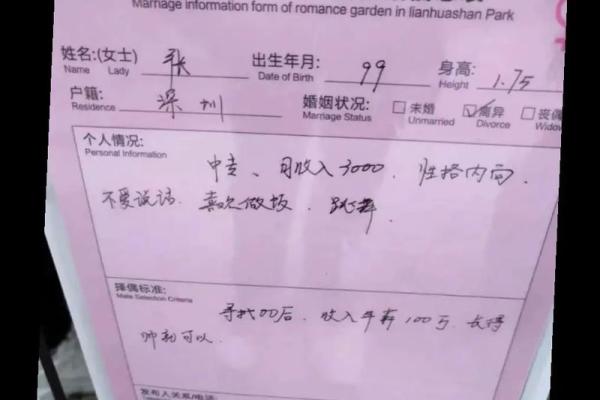 Marriage information form of romance garden in lianhuashan Park
姓名:(女士) 张 出生年月: 99 身高: 1.75
Name Lady Date of Birth Height
户籍: 深圳 婚姻状况: 未婚 离异 丧偶
Residence Marriage Status Unmarried Divorce Widow
个人情况:
Personal Information
中专、月收入3000、性格内向、
不爱说话、喜欢做饭、跳舞、
择偶标准:
Mate Selection Criteria
寻找00后、收入年薪100万、长得
帅就可以、
发布人关系/电话: